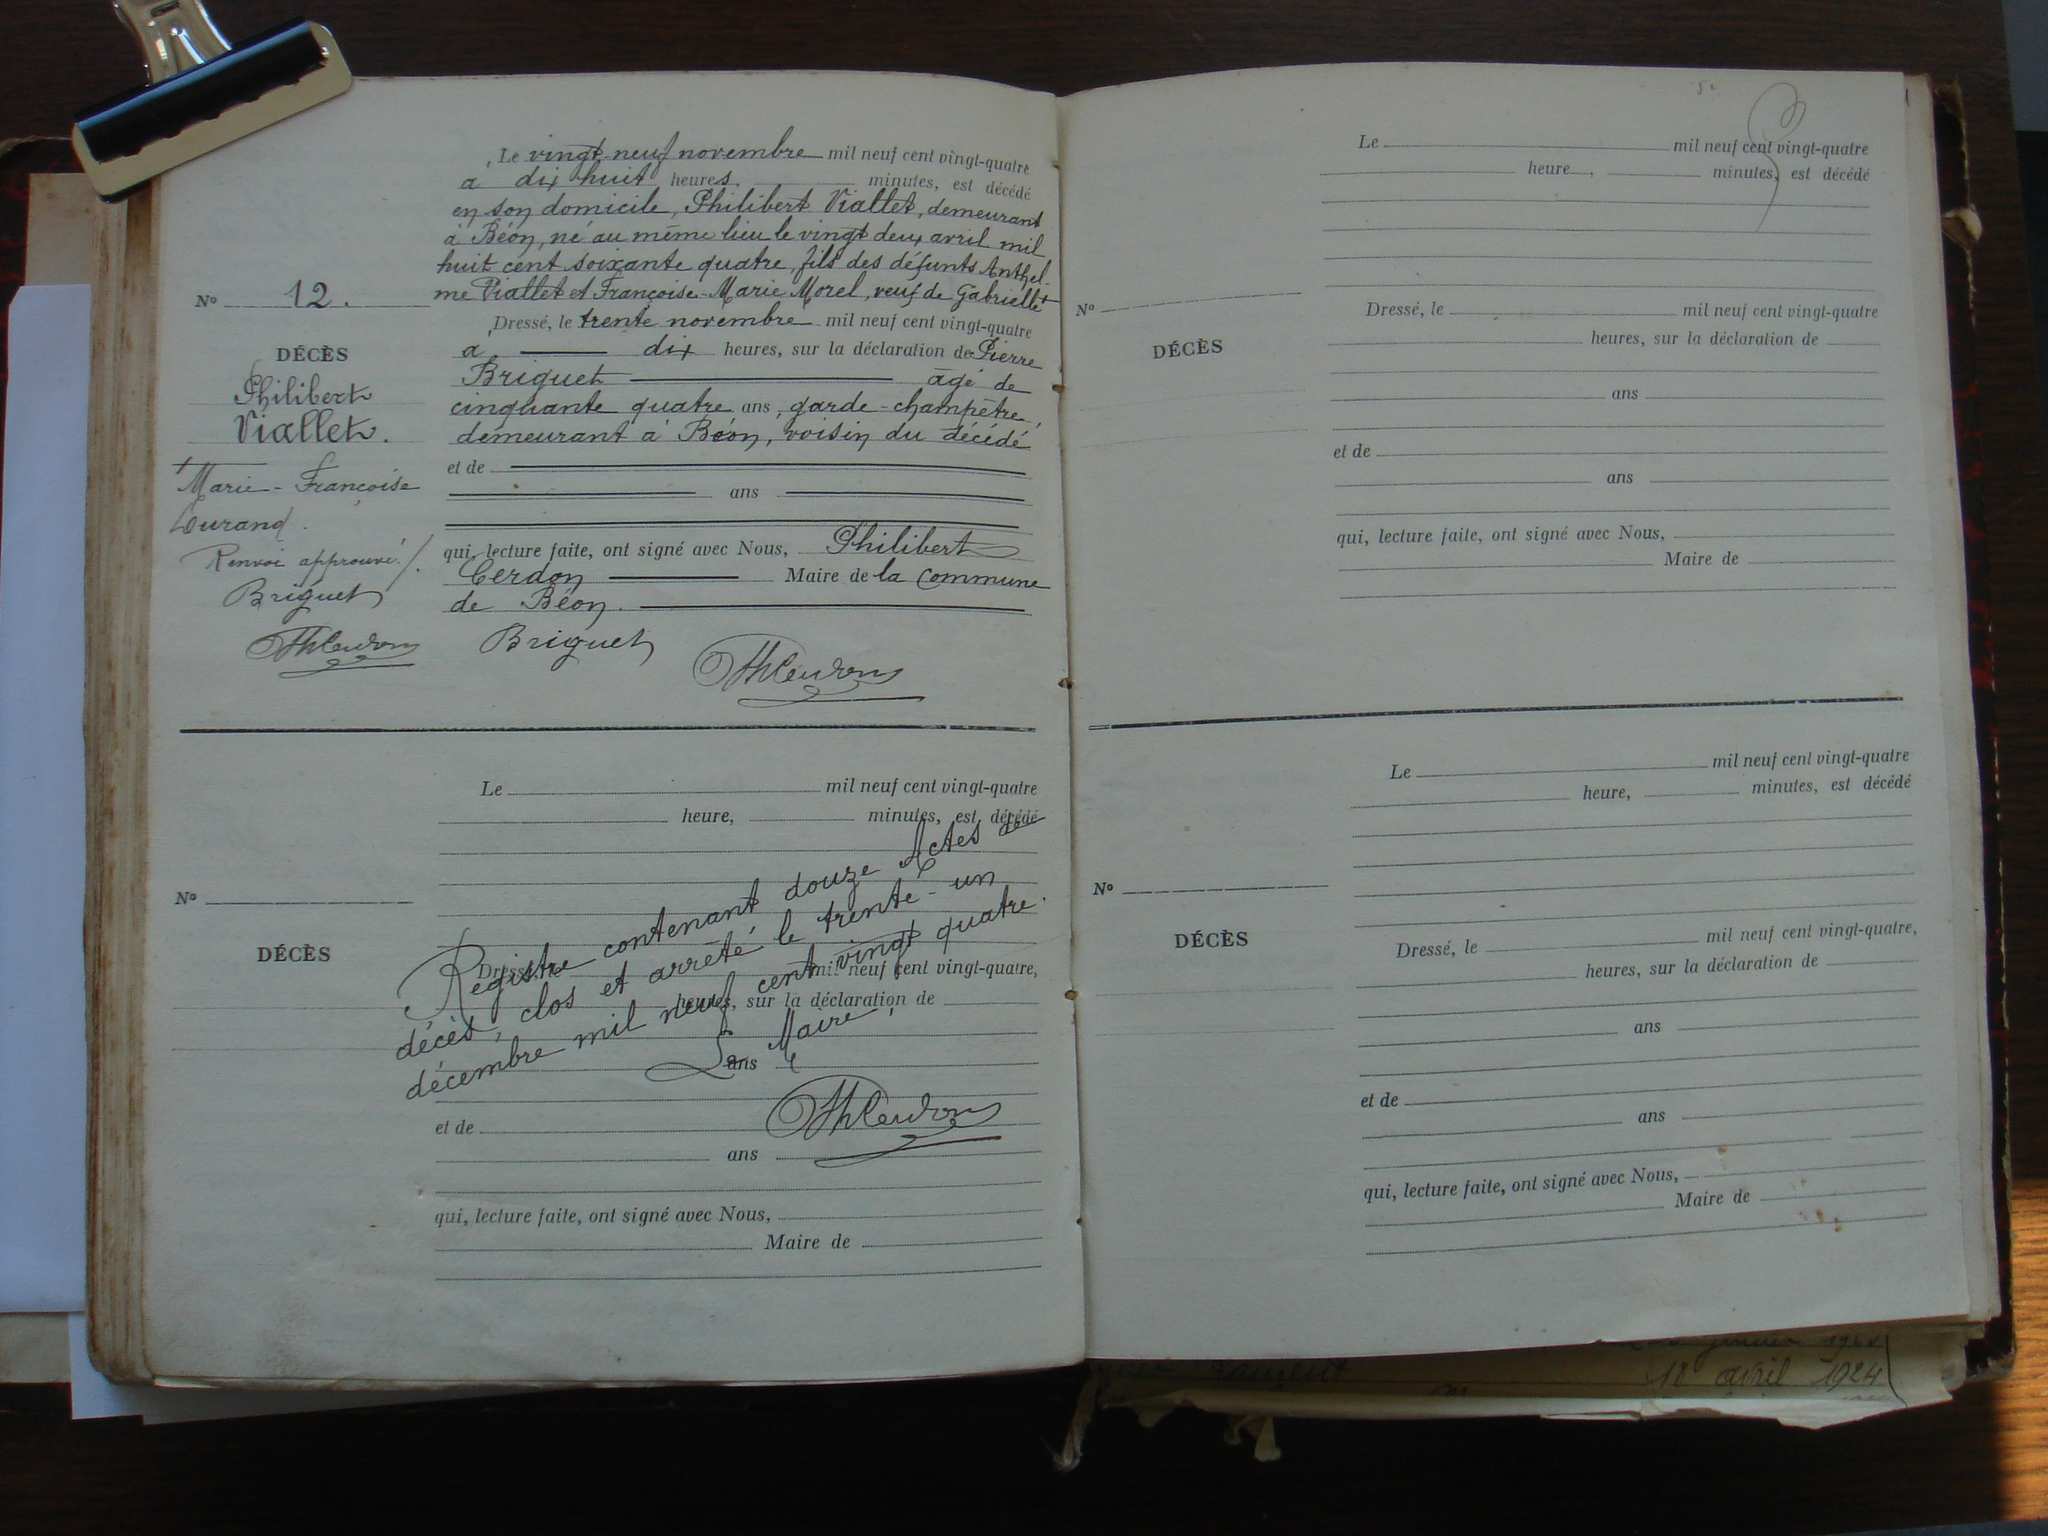 Le vingt neuf novembre mil neuf cent vingt-quatre
à dix huit heures, minutes, est décédé
en son domicile, Philibert Viallet, demeurant
à Béon, né au même lieu le vingt deux avril mil
huit cent soixante quatre, fils des défunts Anthel-
me Viallet et Françoise-Marie Morel, veuf de Gabrielle
Dressé, le trente novembre mil neuf cent vingt-quatre
à dix heures, sur la déclaration de Pierre
Briguet âgé de
cinquante quatre ans, garde-champêtre,
demeurant à Béon, voisin du décédé
et de
ans
qui, lecture faite, ont signé avec Nous, Philibert
Cerdon Maire de la Commune
de Béon.
Briguet
PhCerdon
No 12.
DÉCÈS
Philibert
Viallet.
Marie-Françoise
Durand.
Renvoi approuvé /.
Briguet
PhCerdon
Le mil neuf cent vingt-quatre
heure, minutes, est décédé
No
DÉCÈS
Dressé, le mil neuf cent vingt-quatre,
heures, sur la déclaration de
ans
et de
ans
qui, lecture faite, ont signé avec Nous,
Maire de
Registre contenant douze Actes de
décès, clos et arrêté le trente-un
décembre mil neuf cent vingt quatre.
Le Maire,
PhCerdon
Le mil neuf cent vingt-quatre
heure, minutes, est décédé
No
DÉCÈS
Dressé, le mil neuf cent vingt-quatre
heures, sur la déclaration de
ans
et de
ans
qui, lecture faite, ont signé avec Nous,
Maire de
Le mil neuf cent vingt-quatre
heure, minutes, est décédé
No
DÉCÈS
Dressé, le mil neuf cent vingt-quatre,
heures, sur la déclaration de
ans
et de
ans
qui, lecture faite, ont signé avec Nous,
Maire de
18 avril 1924